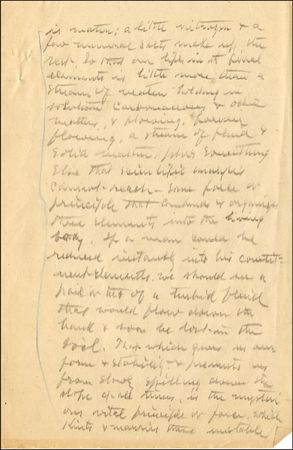 is water; a little nitrogen & a
few mineral salts make up the
rest. So that our life in its final
elements is little more than a
stream of water holding in
solution carbonaceous & other
matters, & flowing, forever
flowing, a stream of fluid &
solid matter, plus something
else that scientific analysis
cannot reach - some force or
principle that combines & organizes
these elements into the living
body. If a man could be
reduced instantly into his constit-
uent elements we should see a
pail or two of a turbid fluid
that would flow down the
bank & soon be lost in the
soil. That which gives us our
form & stability & prevents us
from slowly spilling down the
slope of all things, is the mysteri-
ous vital principle or force which
knits & marries these unstable